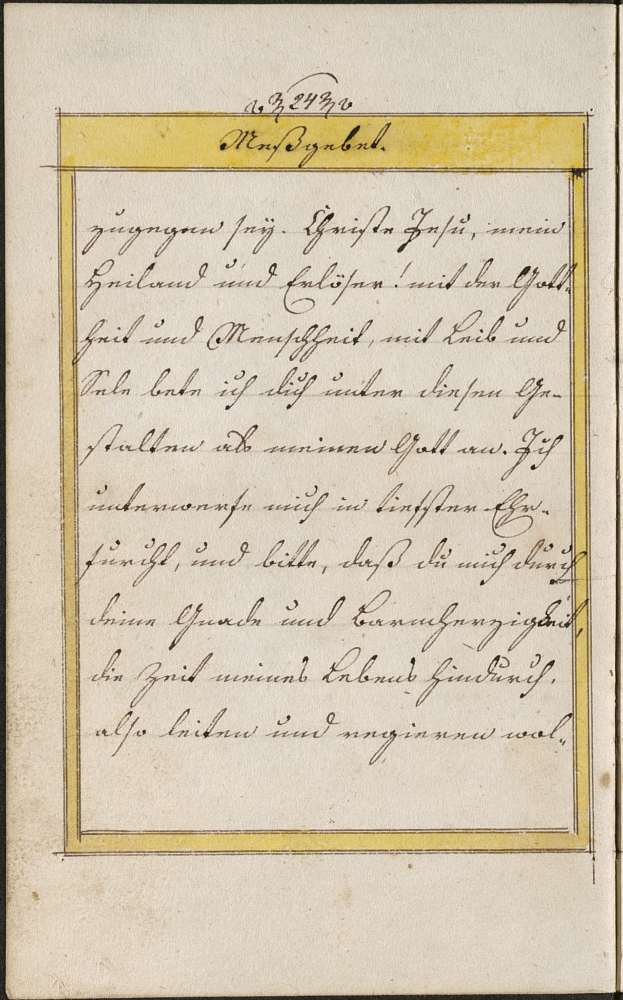 24
Meßgebet.
zugegen sey. Christe Jesu, mein
Heiland und Erlöser! mit der Gott-
heit und Menschheit, mit Leib und
Sele bete ich dich unter diesen Ge-
stalten als meinen Gott an. Ich
unterwerfe mich in tiefster Ehr-
furcht, und bitte, daß du mich durch
deine Gnade und Barmherzigkeit,
die Zeit meines Lebens hindurch,
also leiten und regieren wol-